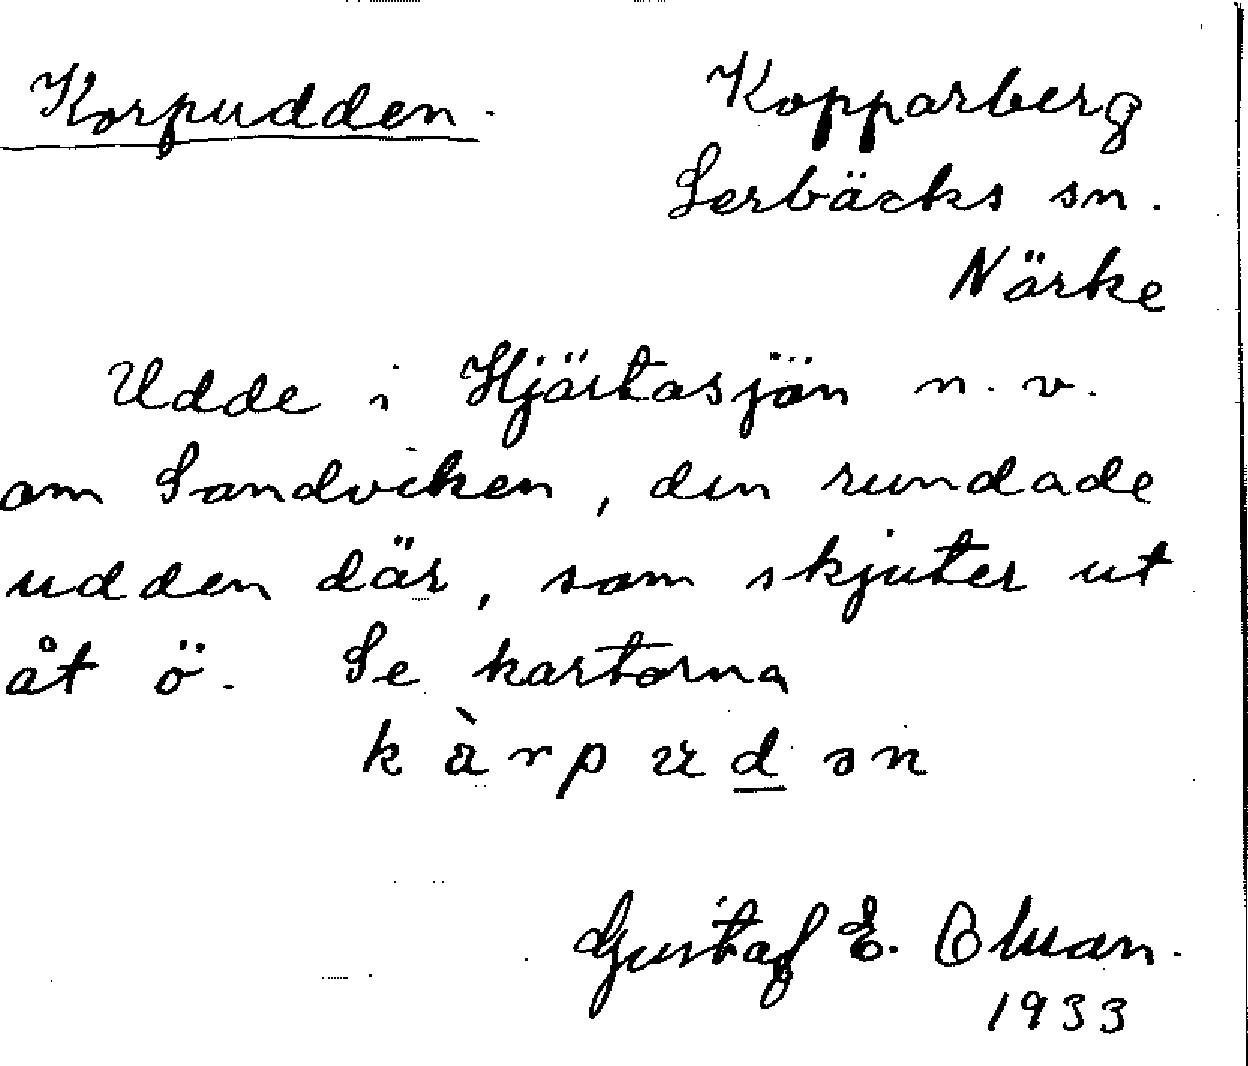 Korpudden. Kopparberg
Lerbäcks sn.
Närke
Udde i Hjärtasjön n.v.
om Sandviken, den rundade
udden där, som skjuter ut
åt ö. Se kartorna
k à r p u d ə n
Gustaf E. Olsson.
1933